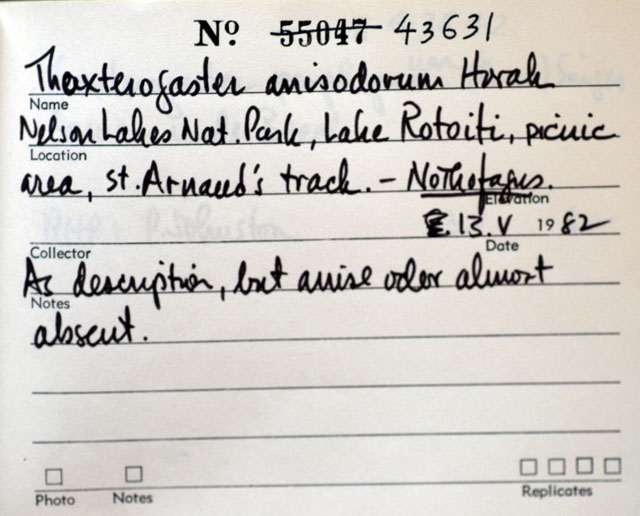 Nº 55047 43631
Thaxterogaster anisodorum Horak
Name
Nelson Lakes Nat. Park, Lake Rotoiti, picnic
Location
area, St. Arnaud's track. – Nothofagus.
Elevation
13.V 1982
Collector
Date
As description, but anise odor almost
Notes
absent.
Photo Notes Replicates